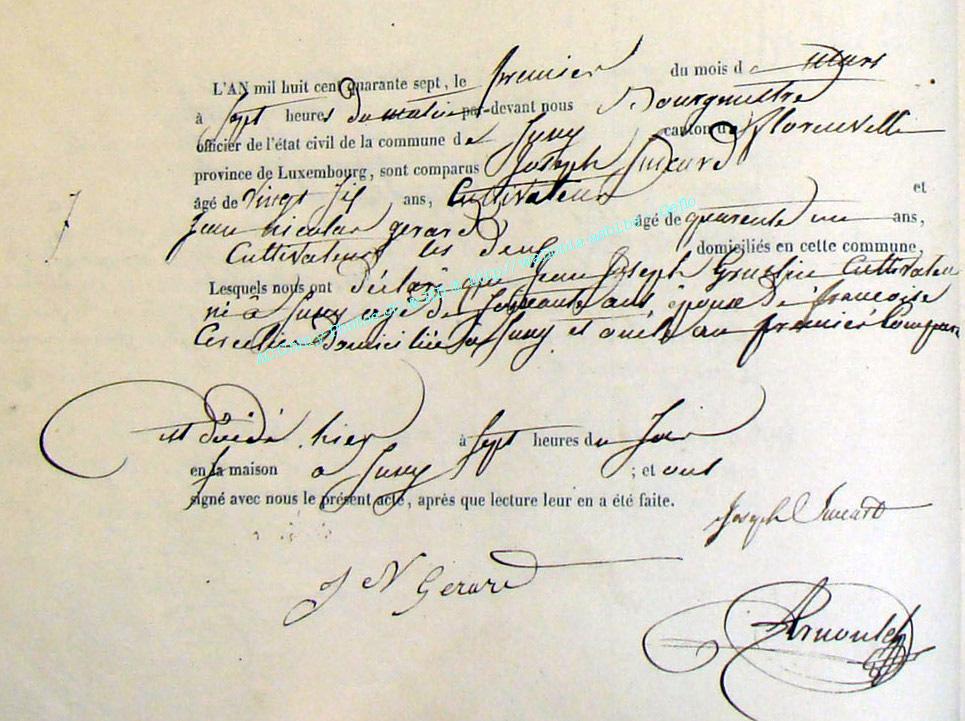 L'AN mil huit cent quarante sept, le premier du mois de mars
à sept heures du matin par-devant nous Bourgmestre
officier de l'état civil de la commune de Suxy canton de Florenville
province de Luxembourg, sont comparus Joseph
âgé de vingt six ans, Cultivateur et
Jean nicolas gerard âgé de quarente un ans,
Cultivateur les deux domiciliés en cette commune,
Lesquels nous ont déclaré que Jean Joseph Cultivateur
né à Suxy agé de soixante ans époux de françoise
domicilié à Suxy et au premier Compar
est décédé hier à sept heures du soir
en sa maison à Suxy ; et ont
signé avec nous le présent acte, après que lecture leur en a été faite.
Joseph
J N Gerard